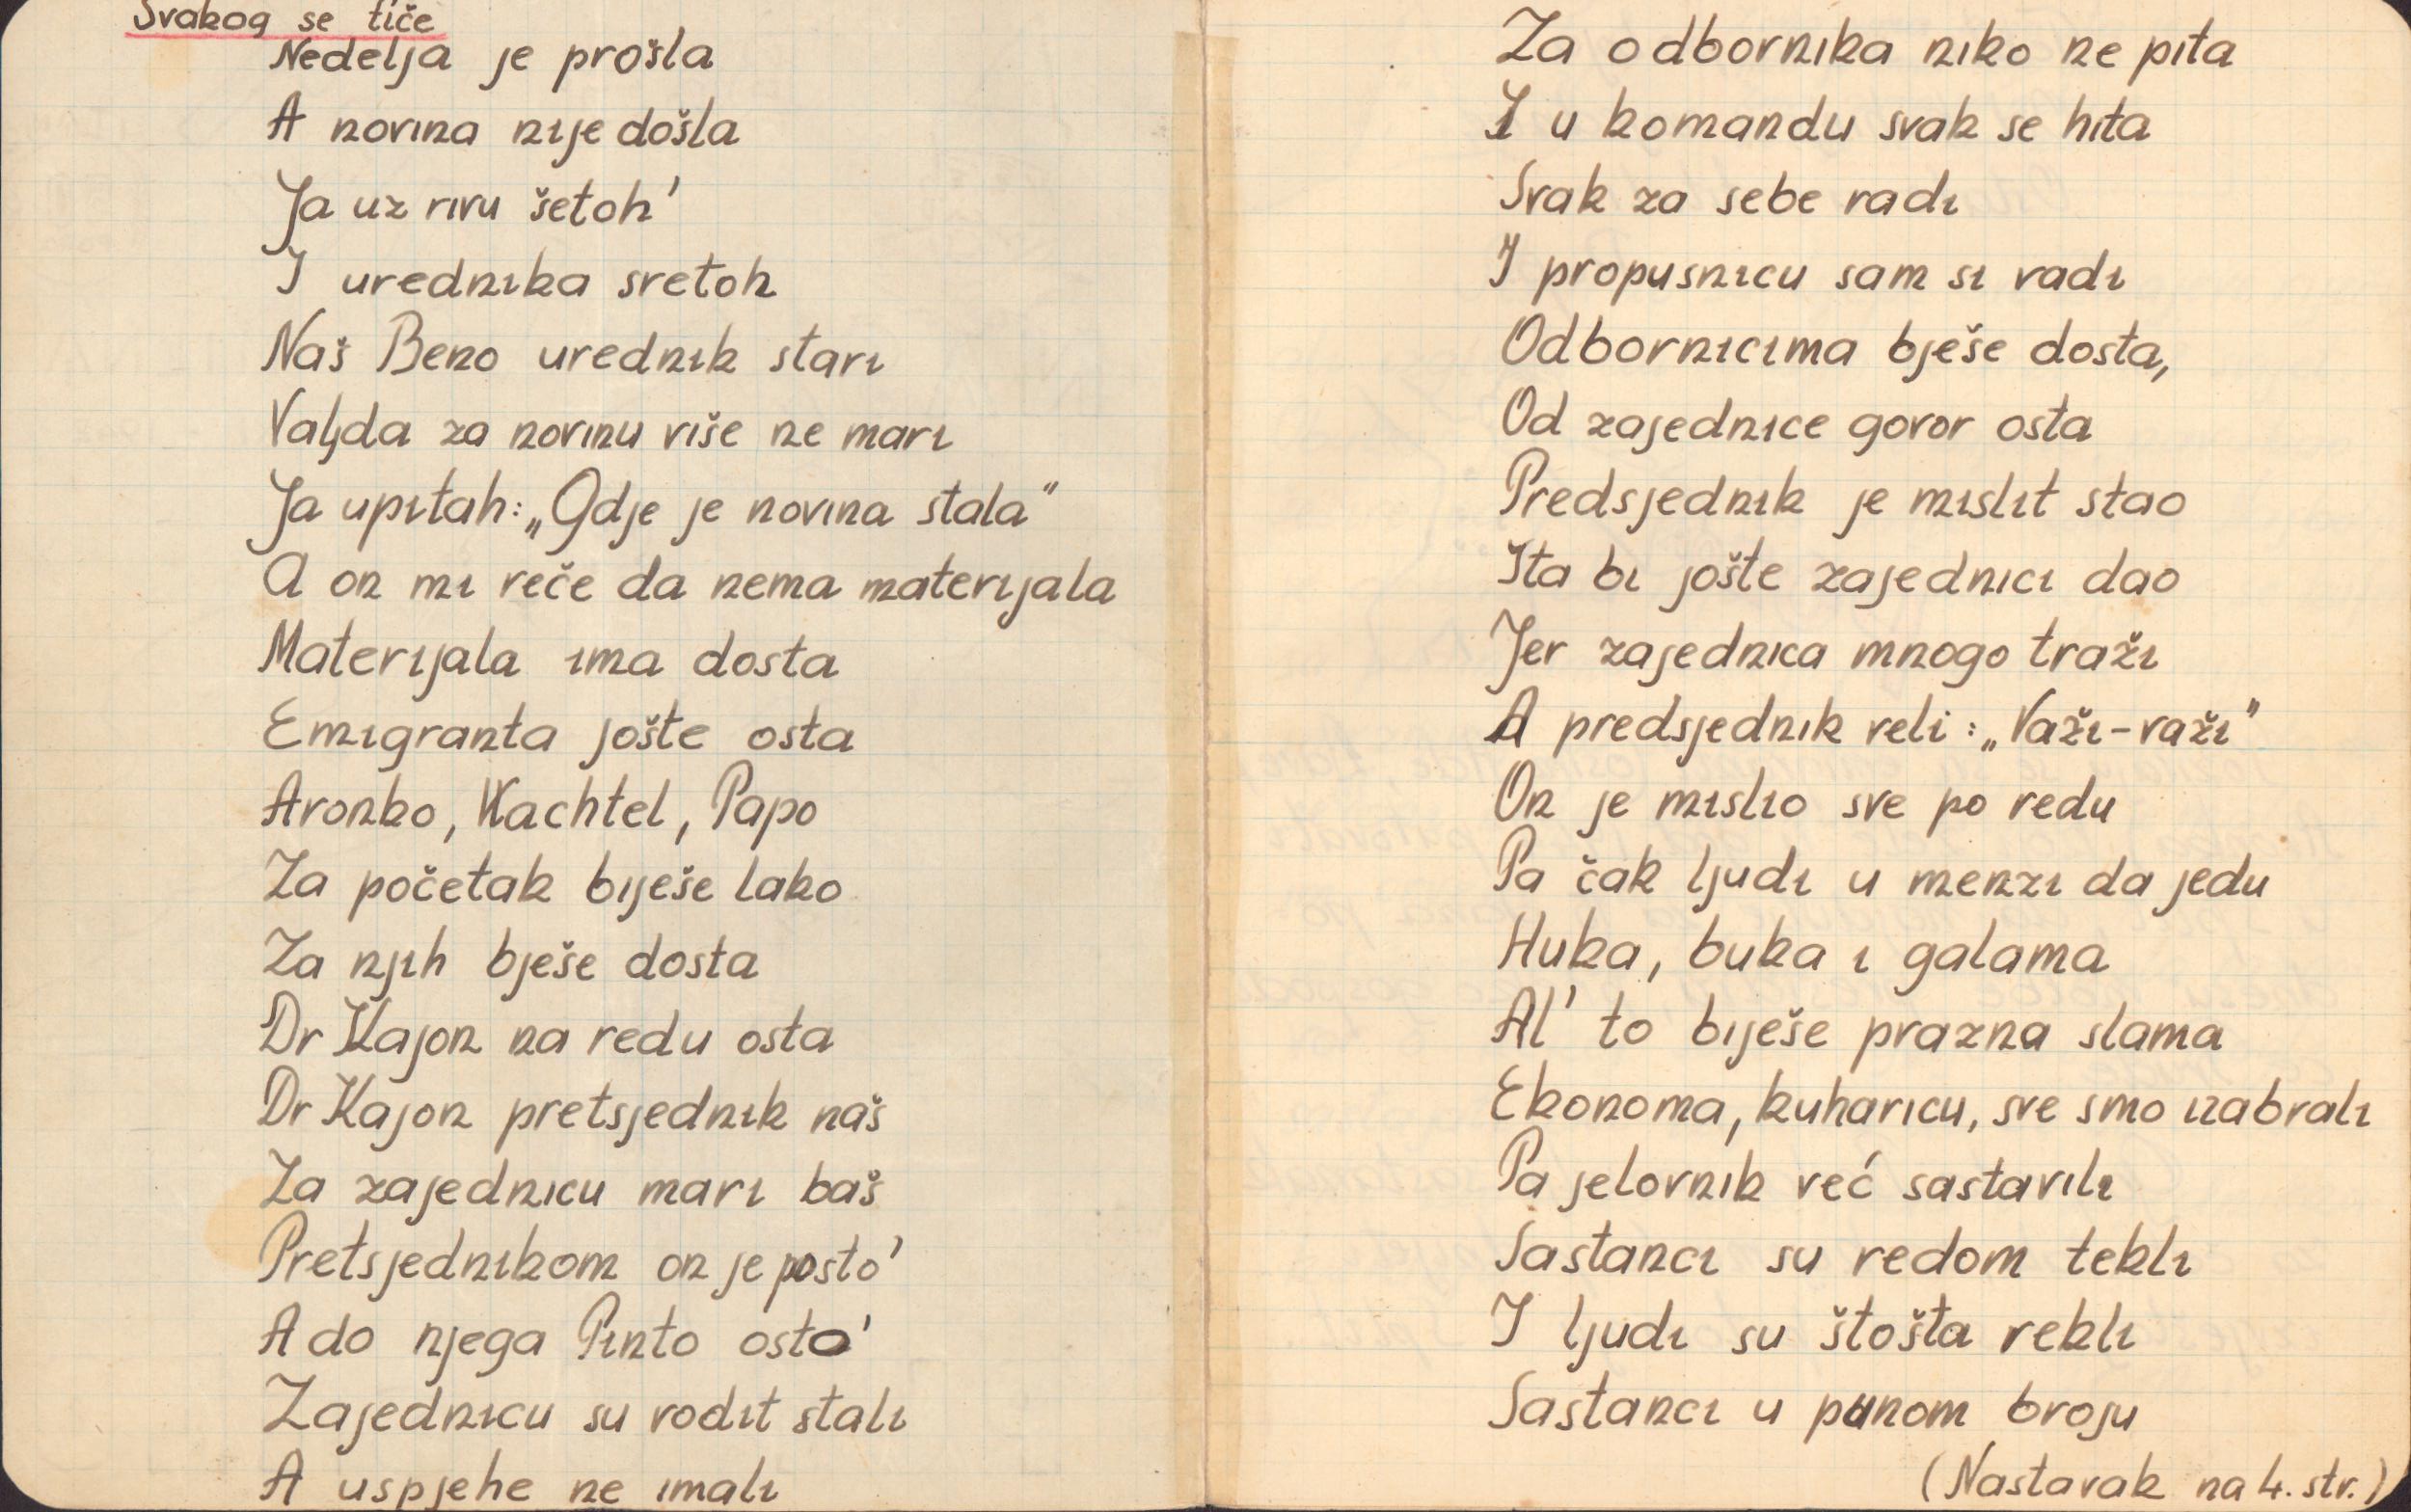 Svakog se tiče
Nedelja je prošla
A novina nije došla
Ja uz rivu šetoh'
I urednika sretoh
Naš Beno urednik stari
Valjda za novinu više ne mari
Ja upitah: „Gdje je novina stala"
A on mi reče da nema materijala
Materijala ima dosta
Emigranta jošte osta
Aronko, Wachtel, Papo
Za početak biješe lako
Za njih bješe dosta
Dr Kajon na redu osta
Dr Kajon pretsjednik naš
Za zajednicu mari baš
Pretsjednikom on je posto'
A do njega Pinto osto'
Zajednicu su vodit stali
A uspjehe ne imali
Za odbornika niko ne pita
I u komandu svak se hita
Svak za sebe radi
I propusnicu sam si vadi
Odbornicima bješe dosta,
Od zajednice govor osta
Predsjednik je mislit stao
Šta bi jošte zajednici dao
Jer zajednica mnogo traži
A predsjednik veli: „Važi-važi"
On je mislio sve po redu
Pa čak ljudi u menzi da jedu
Huka, buka i galama
Al' to biješe prazna slama
Ekonoma, kuharicu, sve smo izabrali
Pa jelovnik već sastavili
Sastanci su redom tekli
I ljudi su štošta rekli
Sastanci u punom broju
(Nastavak na 4. str.)